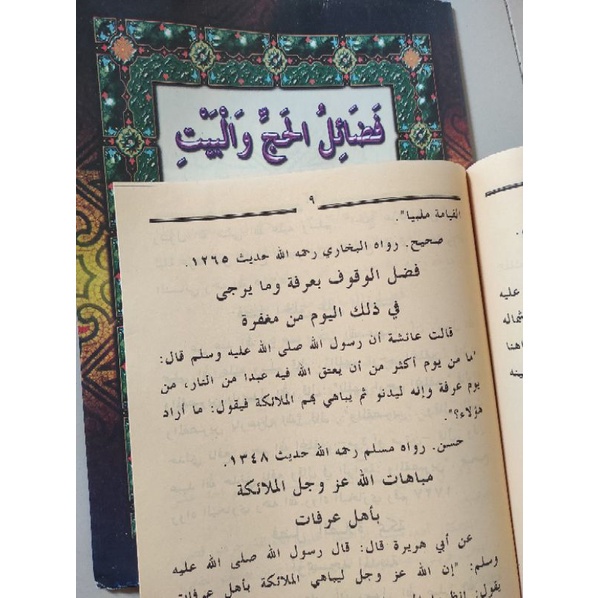 فَضَائِلُ الحَجِّ وَالْبَيْتِ
٩
القيامة ملبيا".
صحيح. رواه البخاري رحمه الله حديث ١٢٦٥.
فضل الوقوف بعرفة وما يرجى
في ذلك اليوم من مغفرة
قالت عائشة أن رسول الله صلى الله عليه وسلم قال:
"ما من يوم أكثر من أن يعتق الله فيه عبدا من النار، من
يوم عرفة وإنه ليدنو ثم يباهي بهم الملائكة فيقول: ما أراد
هؤلاء؟".
حسن. رواه مسلم رحمه الله حديث ١٣٤٨.
مباهات الله عز وجل الملائكة
بأهل عرفات
عن أبي هريرة قال: قال رسول الله صلى الله عليه
وسلم: "إن الله عز وجل ليباهي الملائكة بأهل عرفات
يقول:
عليه
شماله
هاهنا